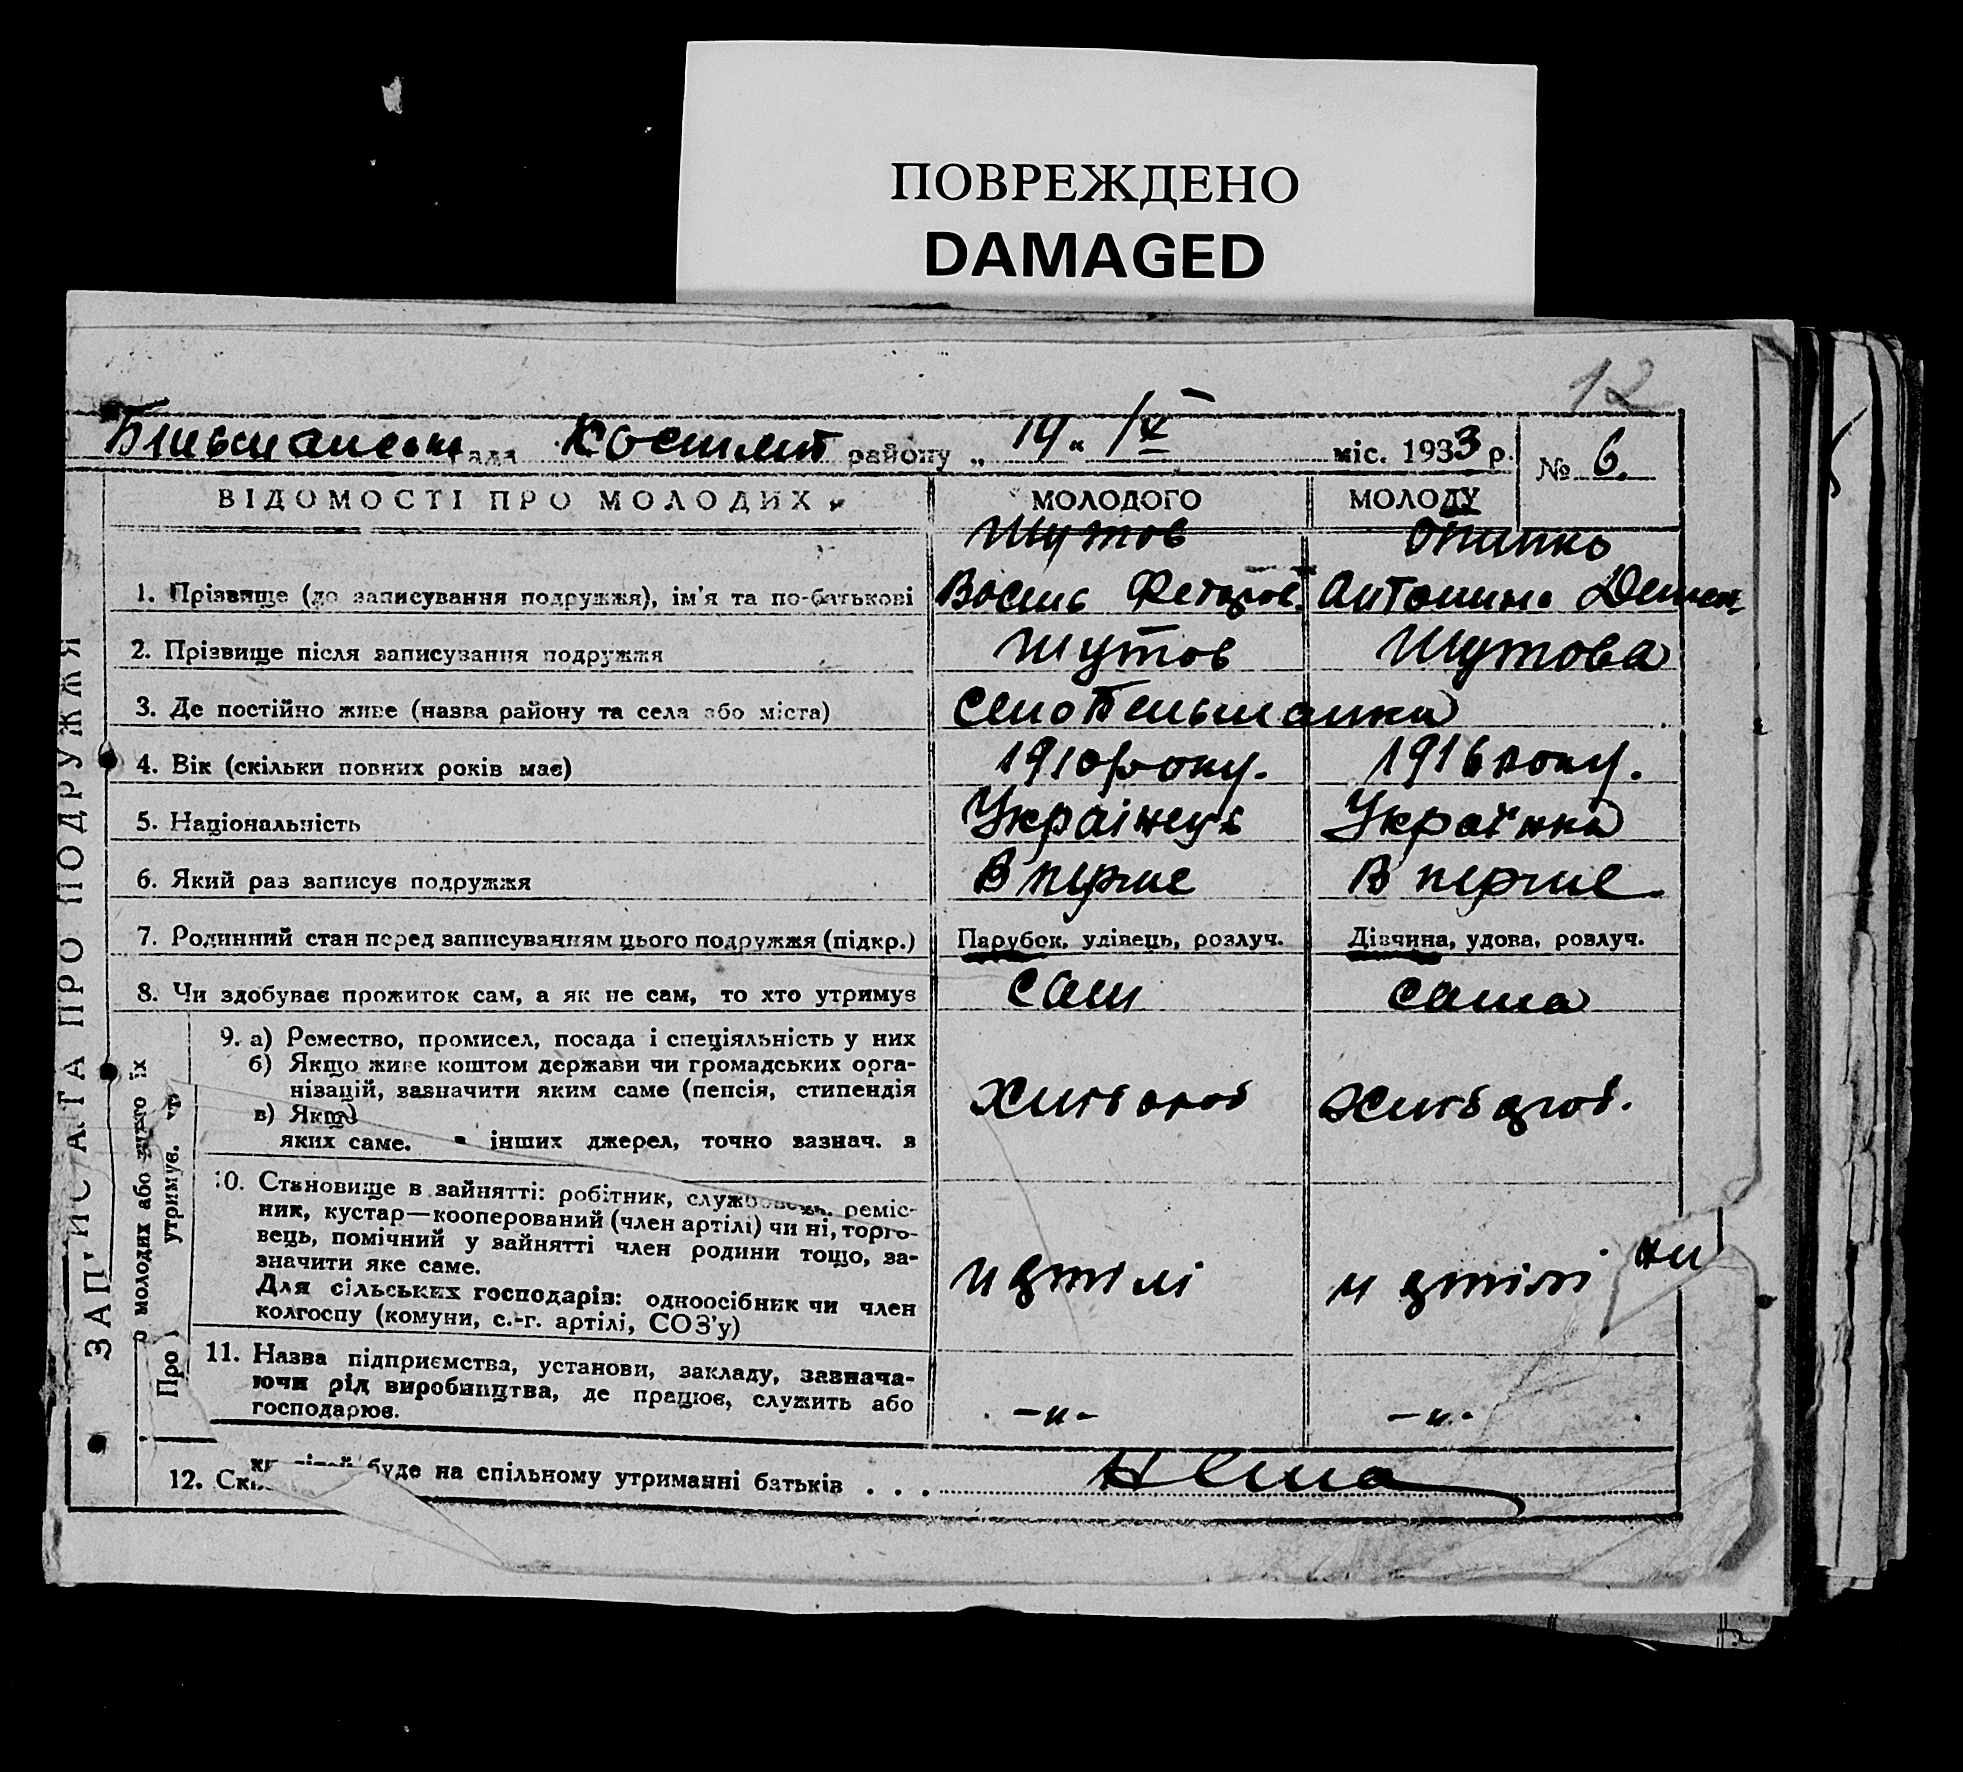 ПОВРЕЖДЕНО
DAMAGED
12
району „ 19 “ IV міс. 1933 р. № 6.
ВІДОМОСТІ ПРО МОЛОДИХ МОЛОДОГО МОЛОДУ
Шутов
1. Прізвище (до записування подружжя), ім'я та по-батькові
2. Прізвище після записування подружжя Шутов Шутова
3. Де постійно живе (назва району та села або міста) село
4. Вік (скільки повних років має) 1910 року. 1916 року.
5. Національність Українець Українка
6. Який раз записує подружжя В перше В перше
7. Родинний стан перед записуванням цього подружжя (підкр.) Парубок, удівець, розлуч. Дівчина, удова, розлуч.
8. Чи здобуває прожиток сам, а як не сам, то хто утримує сам сама
9. а) Ремество, промисел, посада і спеціяльність у них
б) Якщо живе коштом держави чи громадських орга-
нізацій, зазначити яким саме (пенсія, стипендія
в) Якщо
яких саме. інших джерел, точно зазнач. з
10. Становище в зайнятті: робітник, реміс-
ник, кустар—кооперований (член артілі) чи ні, торго-
вець, помічний у зайнятті член родини тощо, за-
значити яке саме.
Для сільських господарів: одноосібник чи член
колгоспу (комуни, с.-г. артілі, СОЗ'у)
11. Назва підприємства, установи, закладу, зазнача-
ючи рід виробництва, де працює, служить або
господарює. -„- -„-
12. буде на спільному утриманні батьків . . . Нема
ЗАПИС АКТА ПРО ПОДРУЖЖЯ
Про молодих або их
утримує.